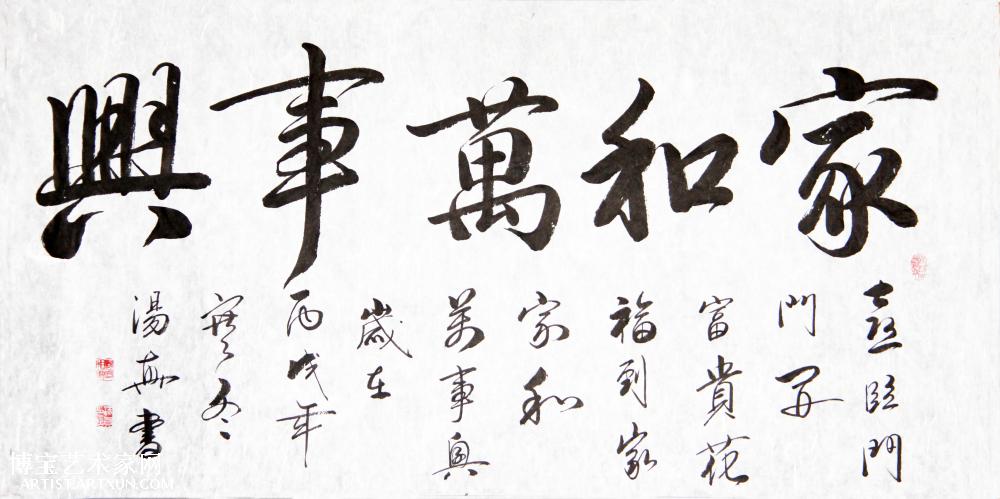 家和萬事興
喜臨門
門開
富貴花
福到家
家和
萬事興
歲在
丙戌年
寒冬
湯書
博宝艺术家网
ARTIST.ARTXUN.COM